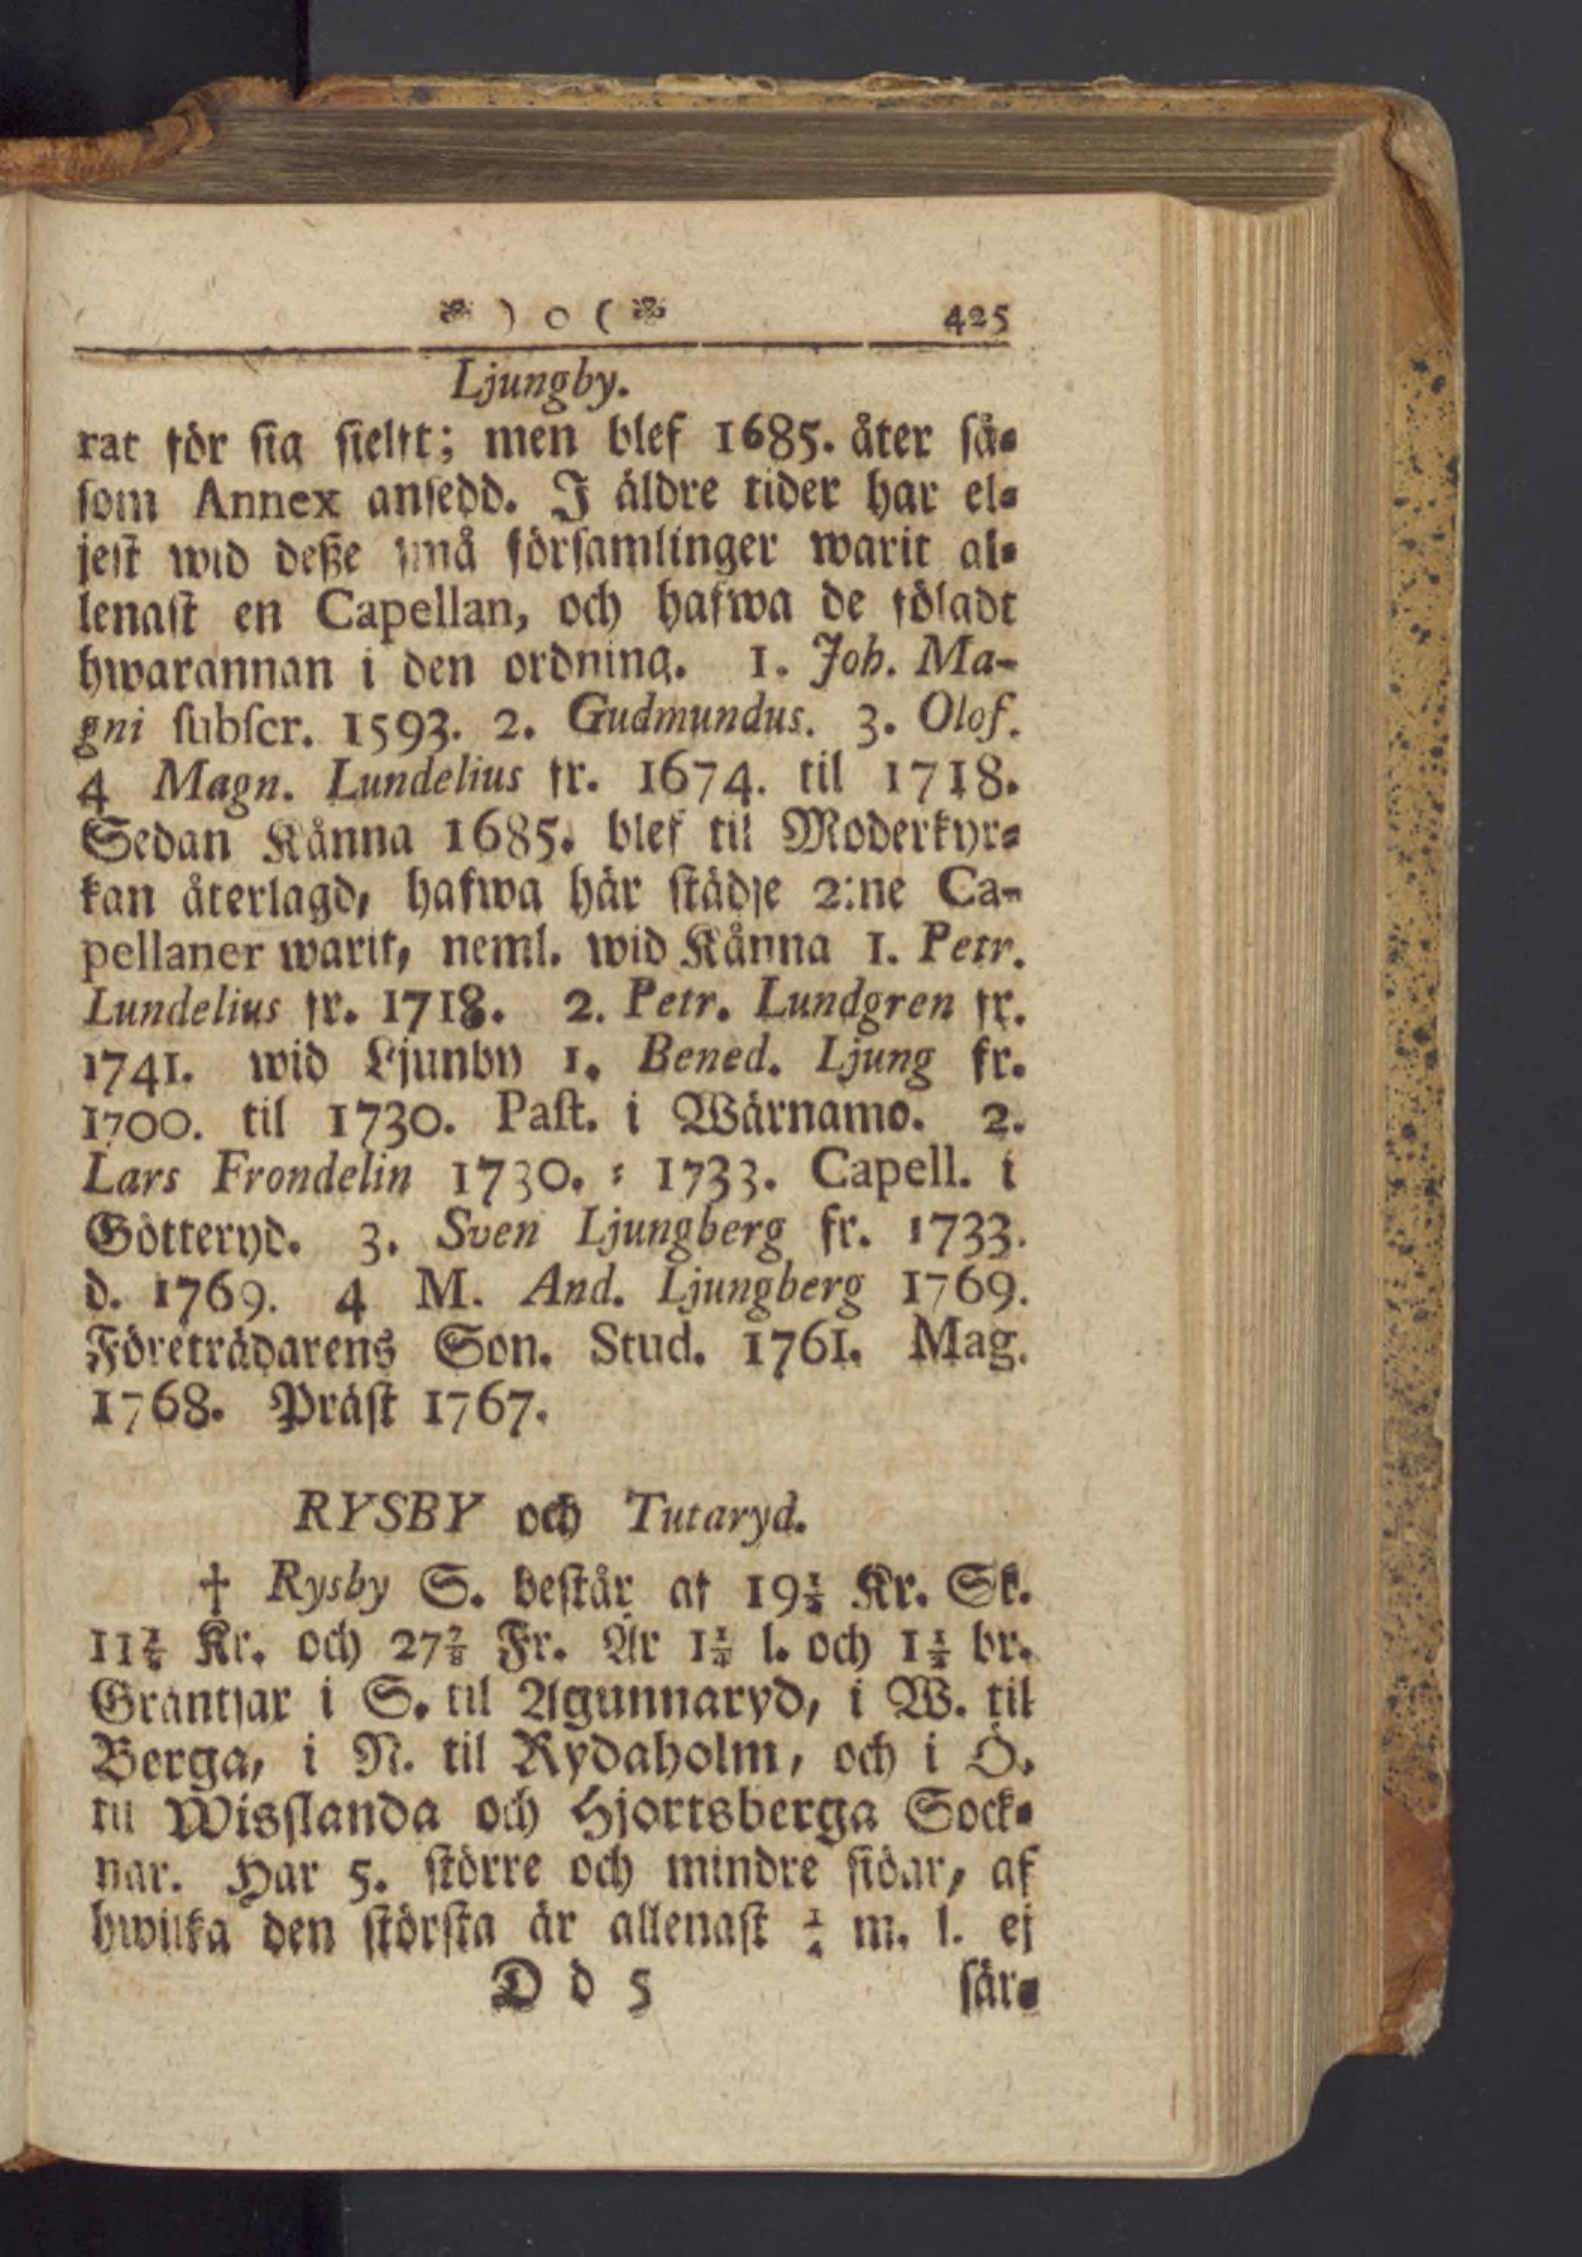 ❧ ) o ( ❧ 425
Ljungby.
rat för sig sielft; men blef 1685. åter så-
som Annex ansedd. I äldre tider har el-
jest wid deße små församlinger warit al-
lenast en Capellan, och hafwa de följadt
hwarannan i den ordning. 1. Joh. Ma-
gni subscr. 1593. 2. Gudmundus. 3. Olof.
4 Magn. Lundelius fr. 1674. til 1718.
Sedan Kånna 1685. blef til Moderkyr-
kan återlagd, hafwa här städje 2:ne Ca-
pellaner warit, neml. wid Kånna 1. Petr.
Lundelius fr. 1718. 2. Petr. Lundgren fr.
1741. wid Ljunby 1. Bened. Ljung fr.
1700. til 1730. Past. i Wärnamo. 2.
Lars Frondelin 1730. : 1733. Capell. i
Götteryd. 3. Sven Ljungberg fr. 1733.
d. 1769. 4 M. And. Ljungberg 1769.
Företrädarens Son. Stud. 1761. Mag.
1768. Präst 1767.
RYSBY och Tutaryd.
† Rysby S. består af 19½ Kr. Sk.
Kr. och 27⅞ Fr. Är 1¼ l. och br.
Gräntsar i S. til Agunnaryd, i W. til
Berga, i N. til Rydaholm, och i Ö.
til Wisslanda och Hjortsberga Sock-
nar. Har 5. större och mindre siöar, af
hwilka den största är allenast ¼ m. l. ej
D d 5 sär-